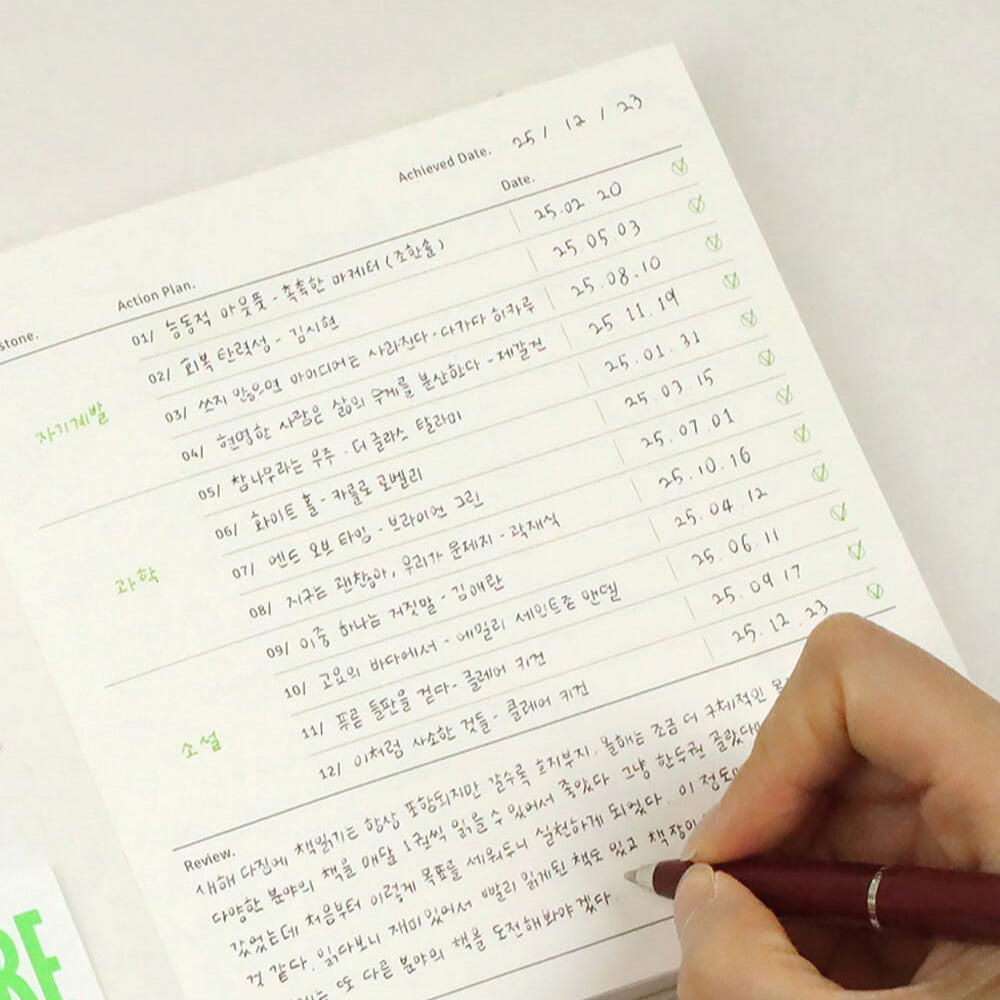 Achieved Date. 25 / 12 / 23
stone. Action Plan. Date.
자기계발
01/ 능동적 아웃풋 - 촉촉한 마케터 (조한솔) 25.02 20
02/ 회복 탄력성 - 김시현 25.05.03
03/ 쓰지 않으면 아이디어는 사라진다 - 다카다 히카루 25.08.10
04/ 현명한 사람은 삶의 무게를 분산한다 - 제갈건 25 11.19
과학
05/ 참나무라는 우주 - 더글라스 탈라미 25.01.31
06/ 화이트 홀 - 카를로 로벨리 25.03.15
07/ 엔드 오브 타임 - 브라이언 그린 25.07.01
08/ 지구는 괜찮아, 우리가 문제지 - 곽재식 25.10.16
소설
09/ 이중 하나는 거짓말 - 김애란 25.04.12
10/ 고요의 바다에서 - 에밀리 세인트존 맨델 25.06.11
11/ 푸른 들판을 걷다 - 클레어 키건 25.09 17
12/ 이처럼 사소한 것들 - 클레어 키건 25.12.23
Review.
새해 다짐에 책읽기는 항상 포함되지만 갈수록 흐지부지. 올해는 조금 더 구체적인
다양한 분야의 책을 매달 1권씩 읽을 수 있어서 좋았다 그냥 한두권 골랐다
갔었는데 처음부터 이렇게 목표를 세워두니 실천하게 되었다. 이 정도
것 같다. 읽다보니 재미있어서 빨리 읽게된 책도 있고 책장이
는 또 다른 분야의 책을 도전해봐야겠다.
RE